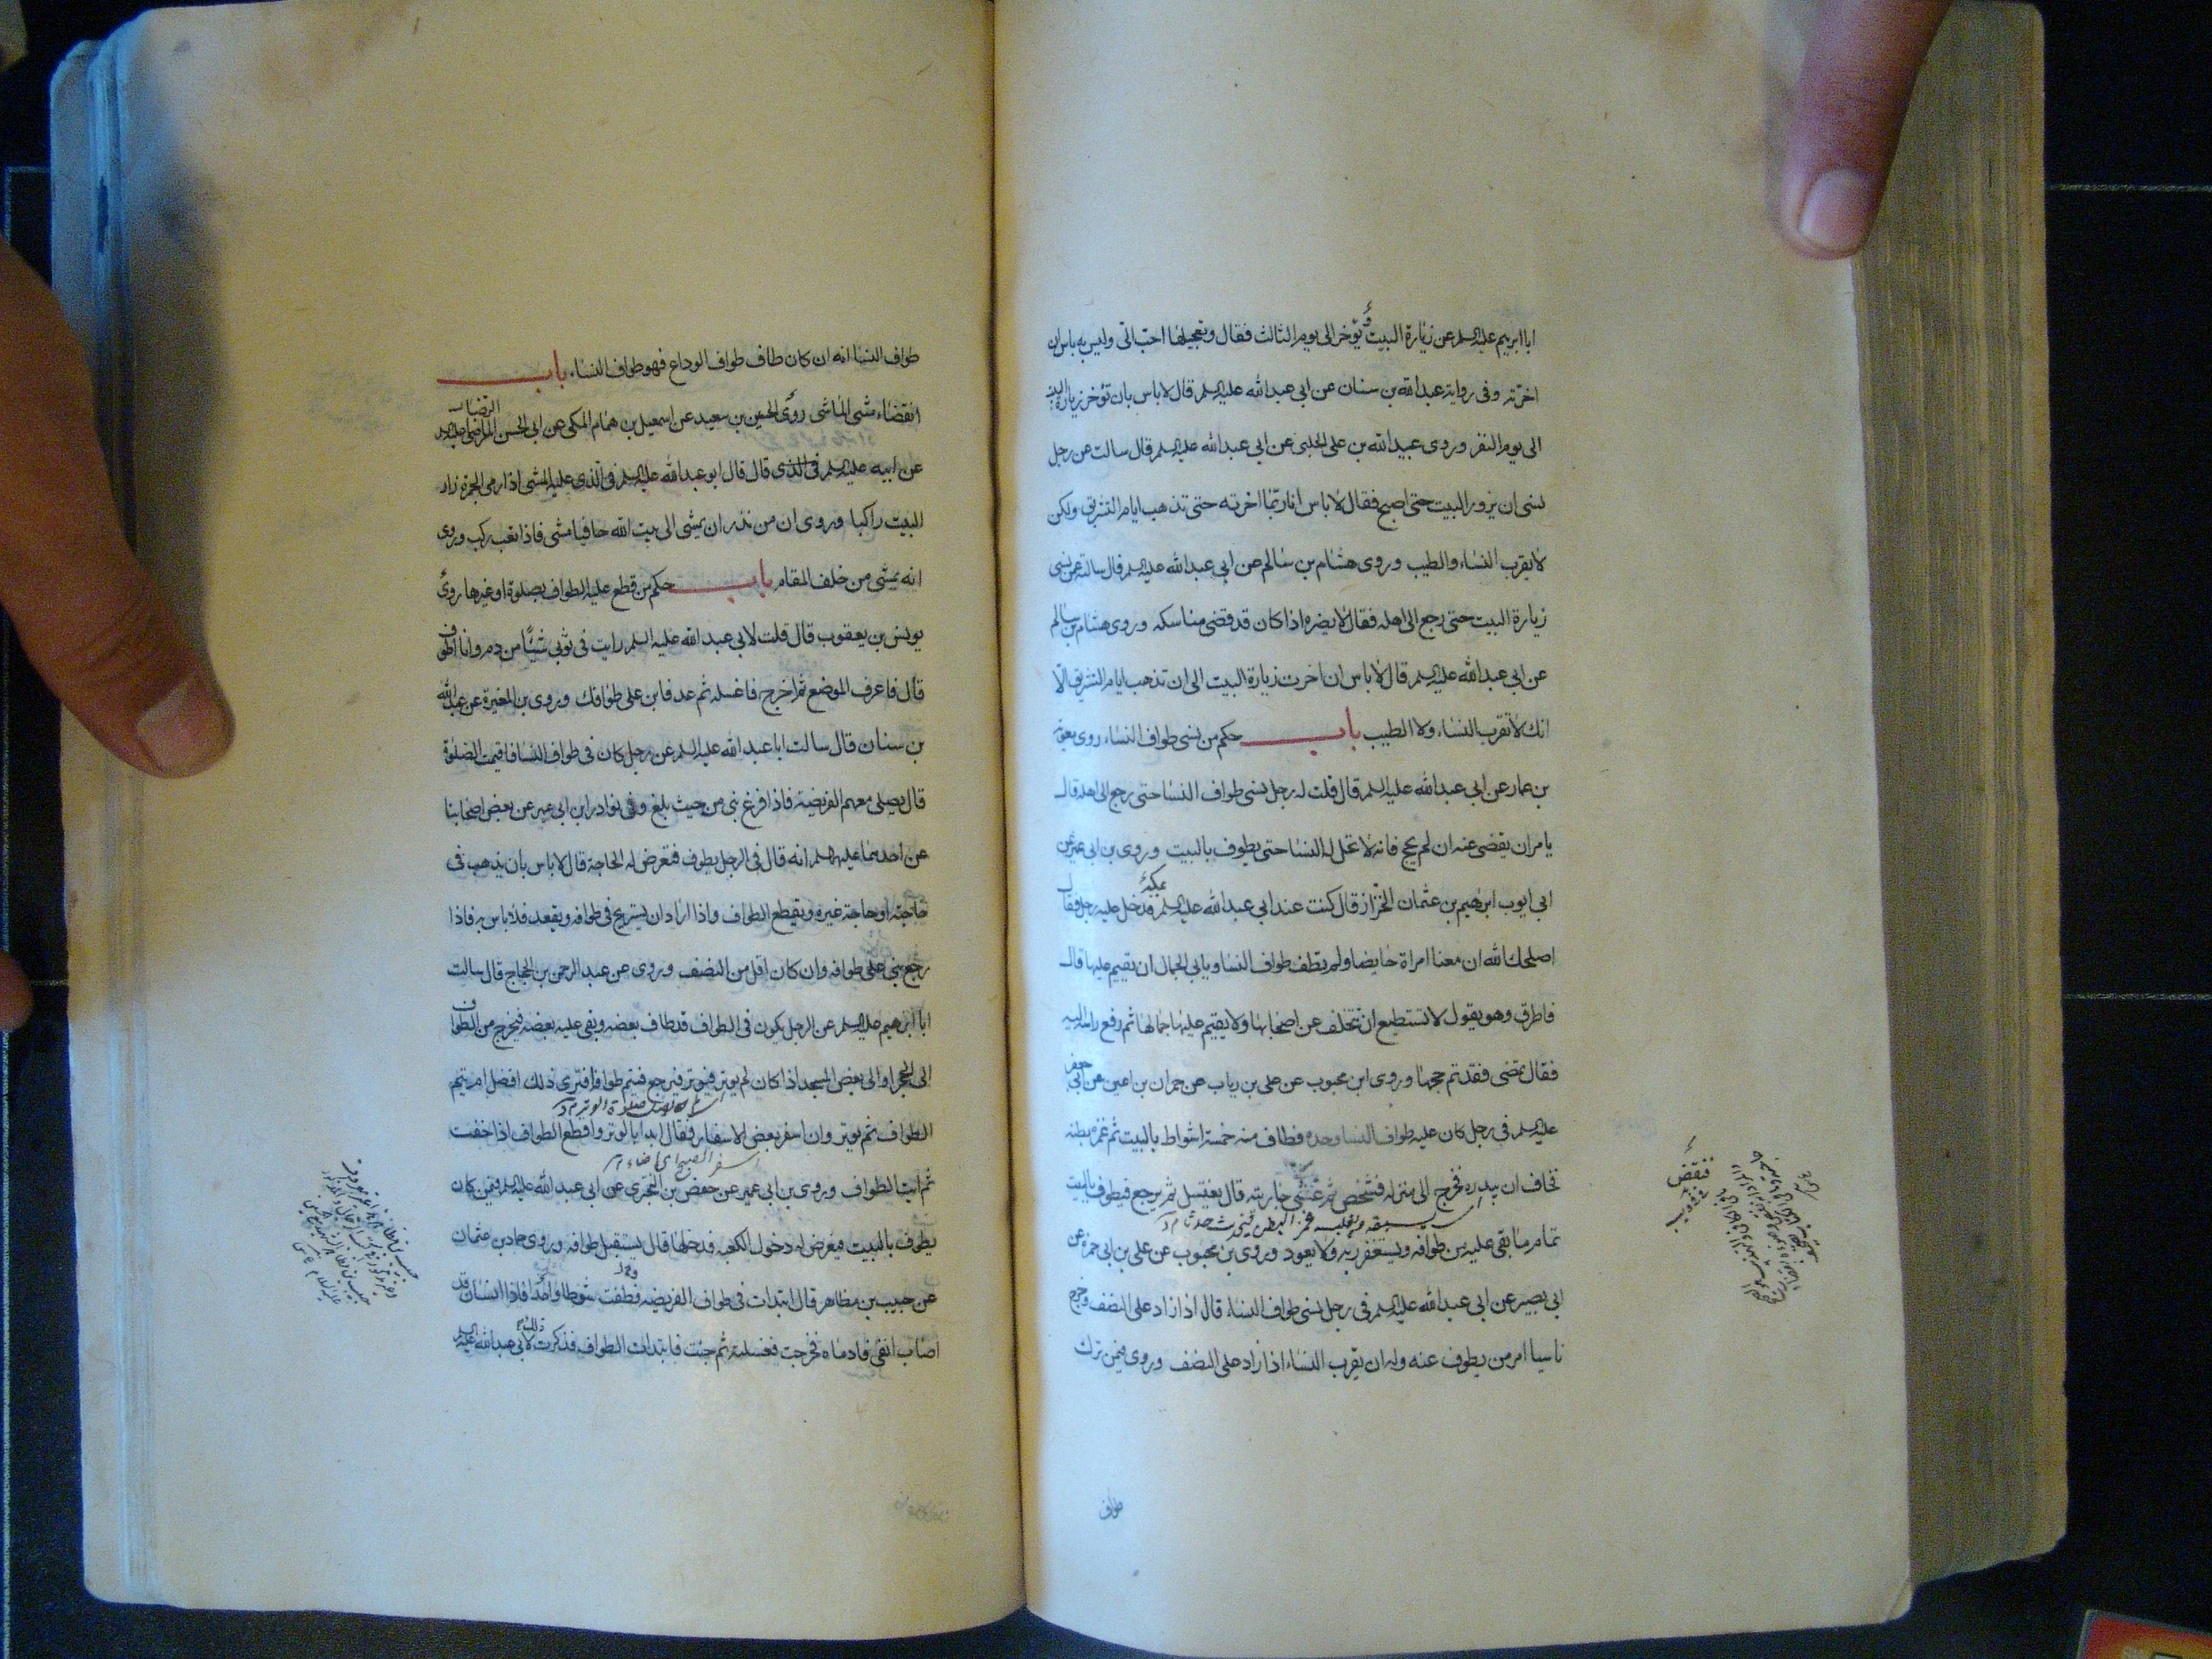 ابا ابرهيم عليه السلم عن زيارة البيت يؤخر الى يوم الثالث فقال وتعجيلها احب الى وليس به باس ان
اخرته وفى رواية عبدالله بن سنان عن ابى عبدالله عليه السلم قال لاباس بان تؤخر زيارة البيت
الى يوم النفر وروى عبيدالله بن على الحلبى عن ابى عبدالله عليه السلم قال سالت عن رجل
نسى ان يزور البيت حتى اصبح فقال لاباس انا ربما اخرته حتى تذهب ايام التشريق ولكن
لا يقرب النساء والطيب وروى هشام بن سالم عن ابى عبدالله عليه السلم قال سالته عمن نسى
زيارة البيت حتى رجع الى اهله فقال لا يضره اذا كان قد قضى مناسكه وروى هشام بن سالم
عن ابى عبدالله عليه السلم قال لاباس ان اخرت زيارة البيت الى ان تذهب ايام التشريق الا
انك لا تقرب النساء ولا الطيب باب حكم من نسى طواف النساء روى معوية
بن عمار عن ابى عبدالله عليه السلم قال قلت له رجل نسى طواف النسا حتى رجع الى اهله قال
يامر ان يقضى عنه ان لم يحج فانه لا تحل له النسا حتى يطوف بالبيت وروى بن ابى عمير عن
بمكة
ابى ايوب ابرهيم بن عثمان الخزاز قال كنت عند ابى عبدالله عليه السلم فدخل عليه رجل فقال
اصلحك الله ان معنا امراة حايضا ولم تطف طواف النسا ويابى الجمال ان يقيم عليها قال
فاطرق وهو يقول لا تستطيع ان تتخلف عن اصحابها ولا يقيم عليها جمالها ثم رفع راسه اليه
فقال تمضى فقد تم حجها وروى ابن محبوب عن على بن رياب عن حمران بن اعين عن ابى جعفر
عليه السلم فى رجل كان عليه طواف النسا وحده فطاف منه خمسة اشواط بالبيت ثم غمزه بطنه
فخاف ان يبدره فخرج الى منزله فشخص ثم غشى جاريته قال يغتسل ثم يرجع فيطوف بالبيت
تمام ما بقى عليه من طوافه ويستغفر ربه ولا يعود وروى بن محبوب عن على بن ابى حمزة عن
ابى بصير عن ابى عبدالله عليه السلم فى رجل نسى طواف النساء قال اذا زاد على النصف وخرج
ناسيا امر من يطوف عنه وله ان يقرب النساء اذا زاد على النصف وروى فيمن ترك
فنقض
طواف
طواف النسا انه ان كان طاف طواف الوداع فهو طواف النساء باب
انقضاء مشى الماشى روى الحسين بن سعيد عن اسمعيل بن همام المكى عن ابى الحسن الرضا عليه السلم
عن ابيه عليه السلم فى الذى قال قال ابو عبدالله عليه السلم فى الذى عليه المشى اذا رمى الجمرة زار
البيت راكبا وروى ان من نذر ان يمشى الى بيت الله حافيا مشى فاذا تعب ركب وروى
انه يمشى من خلف المقام باب حكم من قطع عليه الطواف بصلوة او غيرها روى
يونس بن يعقوب قال قلت لابى عبدالله عليه السلم رايت فى ثوبى شيئا من دم وانا اطوف
قال فاعرف الموضع ثم اخرج فاغسله ثم عد فابن على طوافك وروى بن المغيرة عن عبدالله
بن سنان قال سالت ابا عبدالله عليه السلم عن رجل كان فى طواف النسا فاقيمت الصلوة
قال يصلى معهم الفريضة فاذا فرغ بنى من حيث بلغ وفى نوادر ابن ابى عمير عن بعض اصحابنا
عن احدهما عليهما السلم انه قال فى الرجل يطوف فتعرض له الحاجة قال لاباس بان يذهب فى
حاجته او حاجة غيره ويقطع الطواف واذا اراد ان يستريح فى طوافه ويقعد فلا باس به فاذا
رجع بنى على طوافه وان كان اقل من النصف وروى عن عبد الرحمن بن الحجاج قال سالت
ابا ابرهيم عليه السلم عن الرجل يكون فى الطواف قد طاف بعضه وبقى عليه بعضه فيخرج من الطواف
الى الحجر او الى بعض المسجد اذا كان لم يوتر فيوتر فيرجع فيتم طوافه افترى ذلك افضل ام يتم
الطواف ثم يوتر وان اسفر بعض الاسفار فقال ابدا بالوتر واقطع الطواف اذا خفت
ثم ايت الطواف وروى بن ابى عمير عن حفص بن البخترى عن ابى عبدالله عليه السلم فيمن كان
يطوف بالبيت فيعرض له دخول الكعبه فدخلها قال يستقبل طوافه وروى حماد بن عثمان
عن حبيب بن مظاهر قال ابتدات فى طواف الفريضه فطفت شوطا واحدا فاذا انسان قد
اصاب انفى فادماه فخرجت فغسلته ثم جئت فابتدات الطواف فذكرت ذلك لابى عبدالله عليه السلم